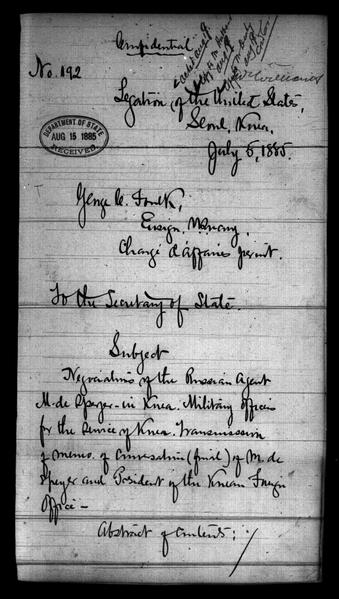 Confidential
No. 192
Legation of the United States,
Seoul, Korea,
July 5, 1885.
DEPARTMENT OF STATE
AUG 15 1885
RECEIVED
George C. Foulk,
Ensign, U.S. Navy,
Chargé d'affaires
To the Secretary of State.
Subject
Negociations of the Russian Agent
M. de Speyer - in Korea. Military officers
for the service of Korea. Transmission
of memo. of conversation (final) of M. de
Speyer and President of the Korean Foreign
Office -
Abstract of Contents: